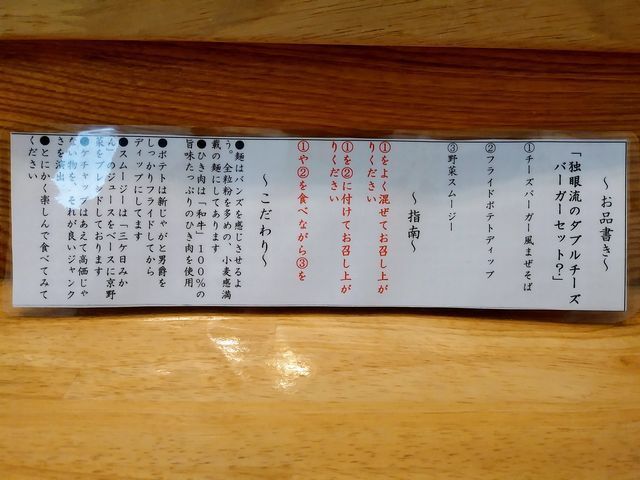 ～お品書き～
「独眼流のダブルチーズ
バーガーセット？」
①チーズバーガー風まぜそば
②フライドポテトディップ
③野菜スムージー
～指南～
①をよく混ぜてお召し上が
りください
①を②に付けてお召し上が
りください
①や②を食べながら③を
～こだわり～
●麺はバンズを感じさせるよ
う。全粒粉を多めの、小麦感満
載の麺にしてあります
●ひき肉は「和牛」100％の
旨味たっぷりのひき肉を使用
●ポテトは新じゃがと男爵を
しっかりフライドしてから
ディップにしてます
●スムージーは「三ケ日みか
ん」のジュースをベースに京野
菜をブレンドしております
●ケチャップはあえて高価じゃ
ない物を、それが良いジャンク
さを演出
●とにかく楽しんで食べてみて
ください